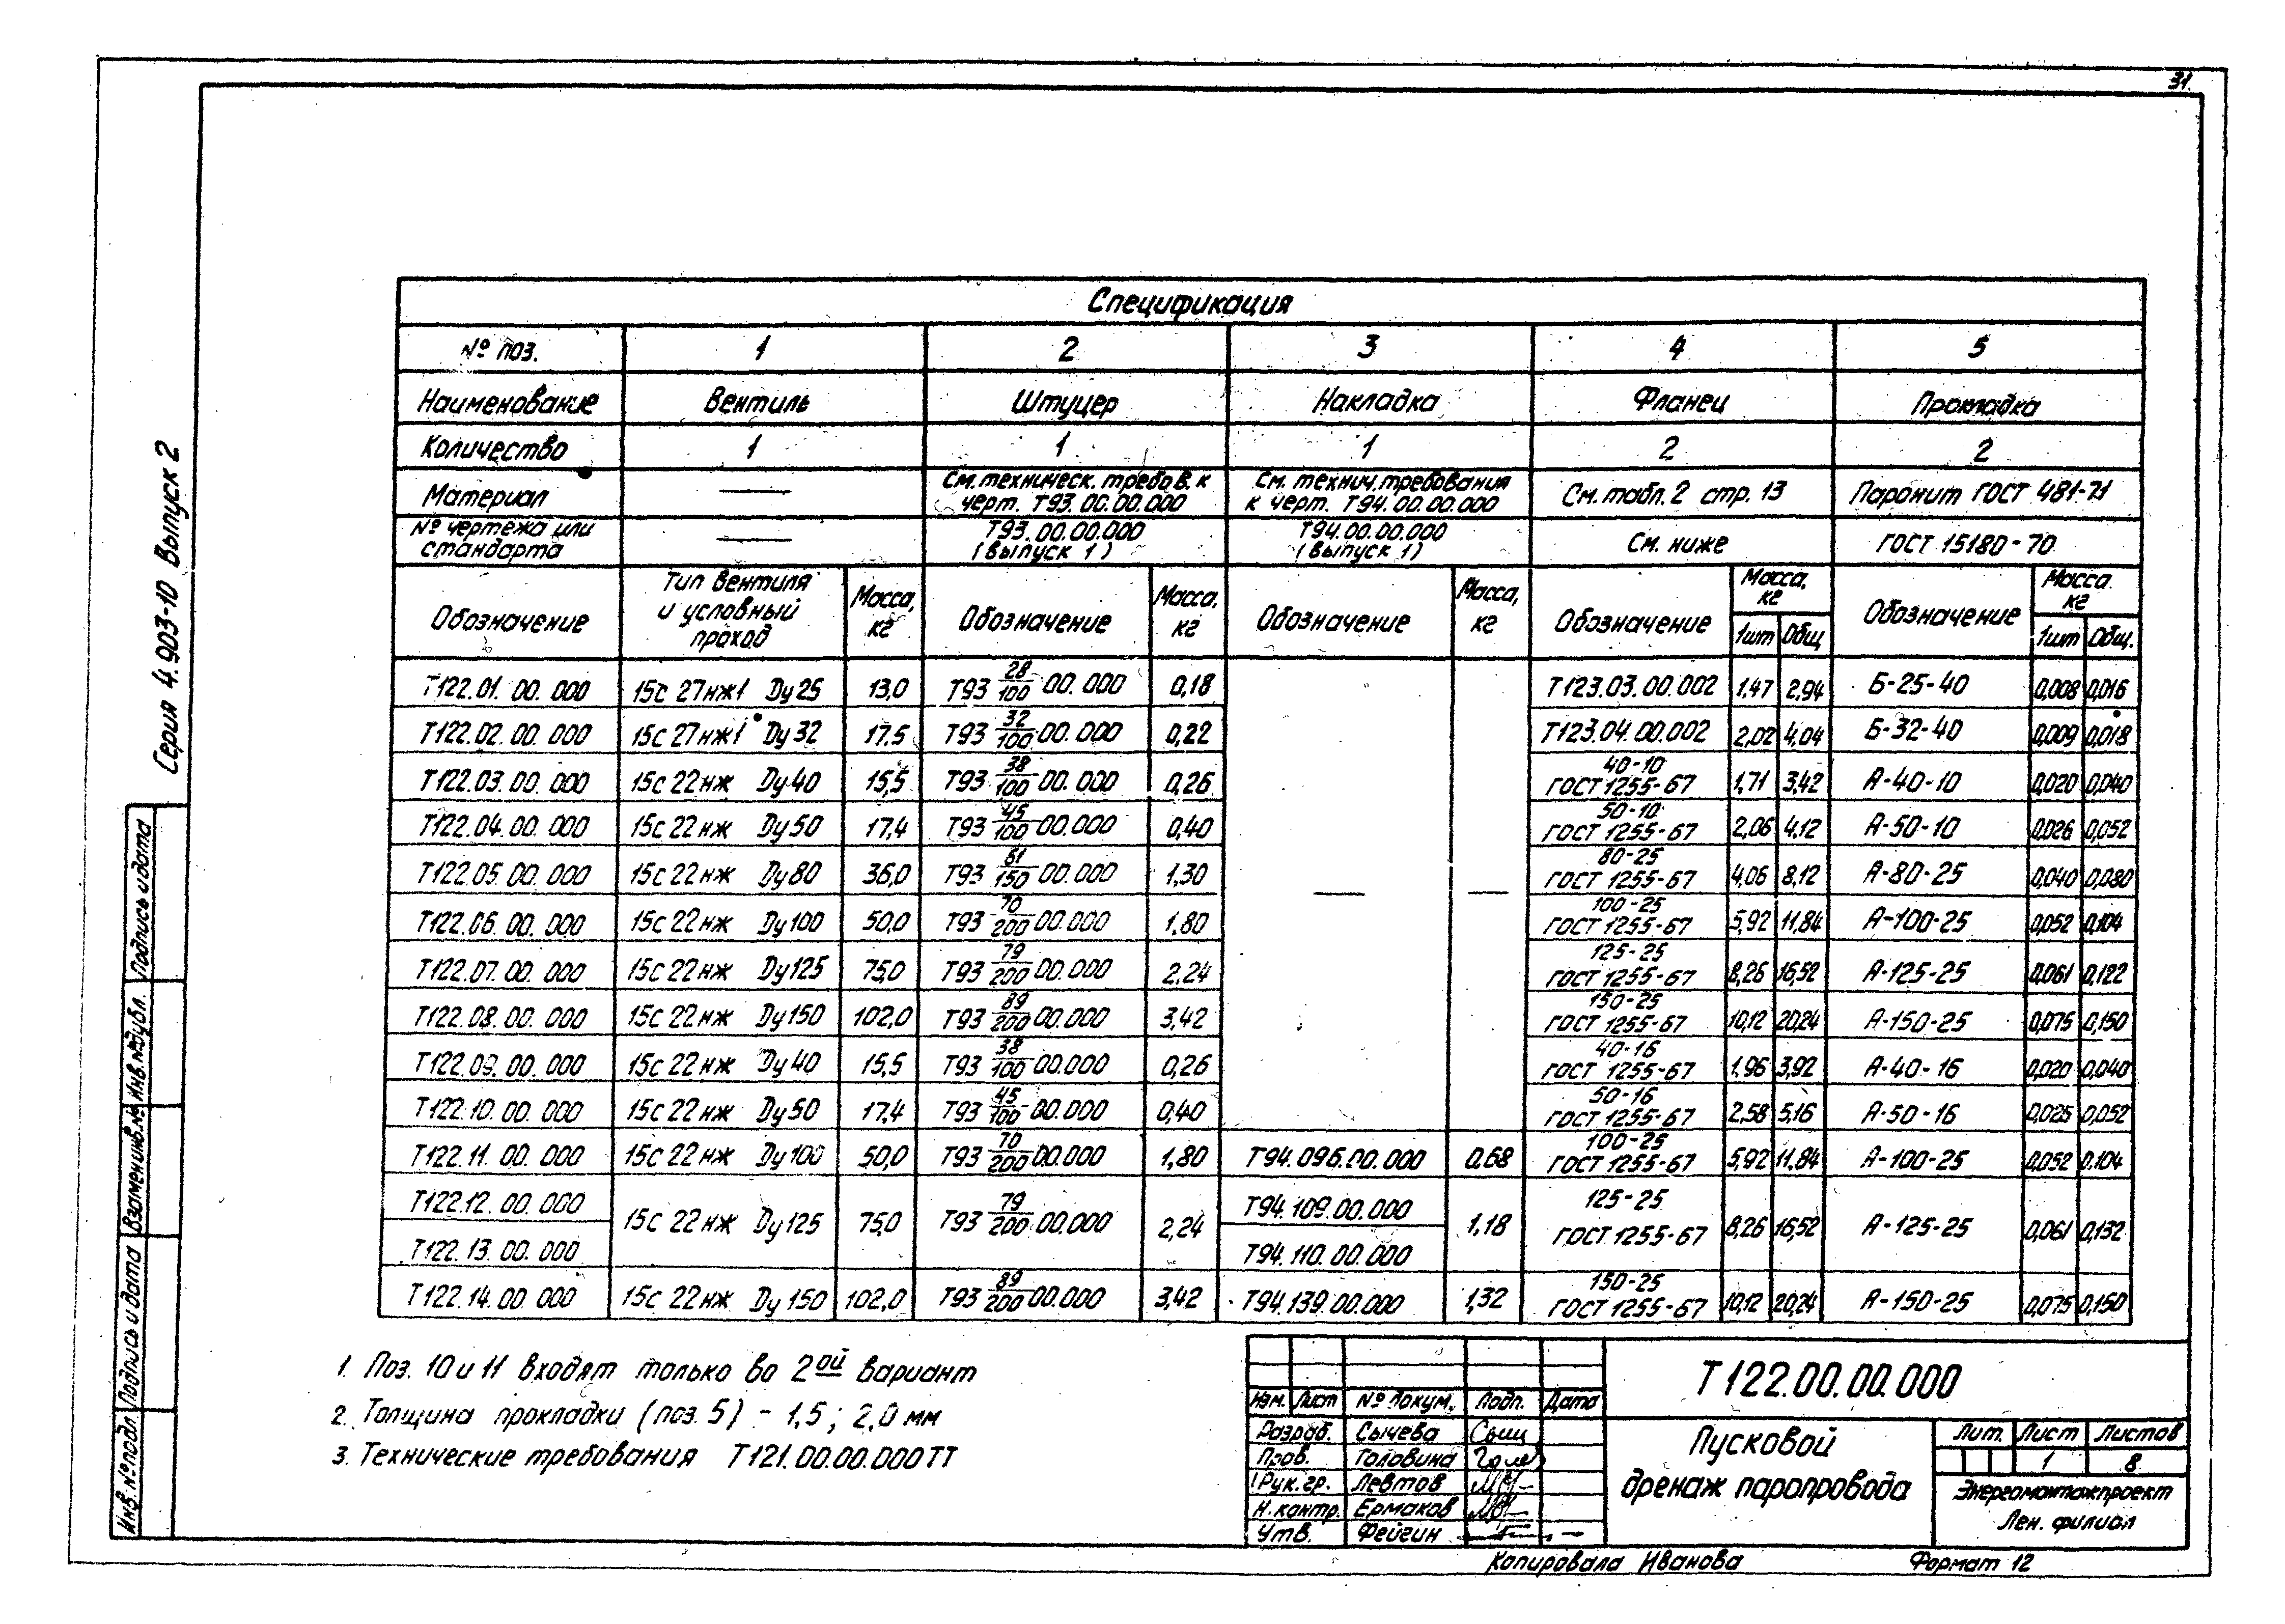 31.
Серия 4.903-10 Выпуск 2
Спецификация
№ поз. 1 2 3 4 5
Наименование Вентиль Штуцер Накладка Фланец Прокладка
Количество 1 1 1 2 2
Материал — См. техническ. требов. к черт. Т93.00.00.000 См. технич. требования к черт. Т94.00.00.000 См. табл. 2 стр. 13 Паронит ГОСТ 481-71
№ чертежа или стандарта — Т93.00.00.000 (выпуск 1) Т94.00.00.000 (выпуск 1) См. ниже ГОСТ 15180-70
Обозначение Тип вентиля и условный проход Масса, кг Обозначение Масса, кг Обозначение Масса, кг Обозначение Масса, кг 1шт Общ Обозначение Масса. кг 1шт Общ.
Т122.01.00.000 15с 27нж1 Dу25 13,0 Т93 28/100 00.000 0,18 Т123.03.00.002 1,47 2,94 Б-25-40 0,008 0,016
Т122.02.00.000 15с 27нж1 Dу32 17,5 Т93 32/100 00.000 0,22 Т123.04.00.002 2,02 4,04 Б-32-40 0,009 0,018
Т122.03.00.000 15с 22нж Dу40 15,5 Т93 38/100 00.000 0,26 40-10 ГОСТ 1255-67 1,71 3,42 А-40-10 0,020 0,040
Т122.04.00.000 15с 22нж Dу50 17,4 Т93 45/100 00.000 0,40 50-10 ГОСТ 1255-67 2,06 4,12 А-50-10 0,026 0,052
Т122.05.00.000 15с 22нж Dу80 36,0 Т93 61/150 00.000 1,30 — — 80-25 ГОСТ 1255-67 4,06 8,12 А-80-25 0,040 0,080
Т122.06.00.000 15с 22нж Dу100 50,0 Т93 70/200 00.000 1,80 100-25 ГОСТ 1255-67 5,92 11,84 А-100-25 0,052 0,104
Т122.07.00.000 15с 22нж Dу125 75,0 Т93 79/200 00.000 2,24 125-25 ГОСТ 1255-67 8,26 16,52 А-125-25 0,061 0,122
Т122.08.00.000 15с 22нж Dу150 102,0 Т93 89/200 00.000 3,42 150-25 ГОСТ 1255-67 10,12 20,24 А-150-25 0,075 0,150
Т122.09.00.000 15с 22нж Dу40 15,5 Т93 38/100 00.000 0,26 40-16 ГОСТ 1255-67 1,96 3,92 А-40-16 0,020 0,040
Т122.10.00.000 15с 22нж Dу50 17,4 Т93 45/100 00.000 0,40 50-16 ГОСТ 1255-67 2,58 5,16 А-50-16 0,025 0,052
Т122.11.00.000 15с 22нж Dу100 50,0 Т93 70/200 00.000 1,80 Т94.096.00.000 0,68 100-25 ГОСТ 1255-67 5,92 11,84 А-100-25 0,052 0,104
Т122.12.00.000 15с 22нж Dу125 75,0 Т93 79/200 00.000 2,24 Т94.109.00.000 1,18 125-25 ГОСТ 1255-67 8,26 16,52 А-125-25 0,061 0,132
Т122.13.00.000 Т94.110.00.000
Т122.14.00.000 15с 22нж Dу150 102,0 Т93 89/200 00.000 3,42 Т94.139.00.000 1,32 150-25 ГОСТ 1255-67 10,12 20,24 А-150-25 0,075 0,150
1. Поз. 10 и 11 входят только во 2ой вариант
2. Толщина прокладки (поз. 5) - 1,5; 2,0 мм
3. Технические требования Т121.00.00.000ТТ
Т122.00.00.000
Изм. Лист № докум. Подп. Дата
Разраб. Сычева Сыч
Пров. Головина Голов
Рук. гр. Левтов
Н. контр. Ермаков
Утв. Фейгин
Пусковой
дренаж паропровода
Лит. Лист Листов
1 8
Энергомонтажпроект
Лен. филиал
Копировала Иванова Формат 12
Инв. № подл. Подпись и дата Взамен инв. № Инв. № дубл. Подпись и дата